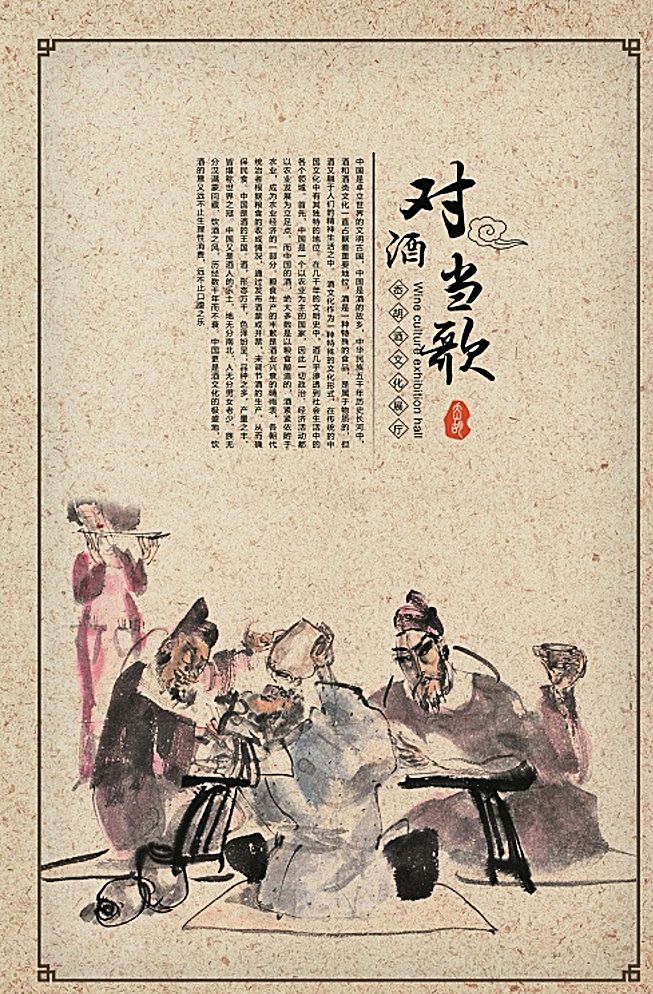 对酒当歌
Wine culture exhibition hall
胡酒文化展厅
中国是卓立世界的文明古国,中国是酒的故乡,中华民族五千年历史长河中,
酒和酒类文化一直占据着重要地位,酒是一种特殊的食品,是属于物质的,但
酒又融于人们的精神生活之中。酒文化作为一种特殊的文化形式,在传统的中
国文化中有其独特的地位,在几千年的文明史中,酒几乎渗透到社会生活中的
各个领域。首先,中国是一个以农业为主的国家,因此一切政治、经济活动都
以农业发展为立足点。而中国的酒,绝大多数是以粮食酿造的,酒紧紧依附于
农业,成为农业经济的一部分。粮食生产的丰歉是酒业兴衰的晴雨表,各朝代
统治者根据粮食的收成情况,通过发布酒禁或开禁,来调节酒的生产,从而确
保民食。中国是酒的王国。酒,形态万千,色泽纷呈;品种之多,产量之丰,
皆堪称世界之冠。中国又是酒人的乐土,地无分南北,人无分男女老少,族无
分汉满蒙回藏,饮酒之风,历经数千年而不衰。中国更是酒文化的极盛地,饮
酒的意义远不止生理性消费,远不止口腹之乐